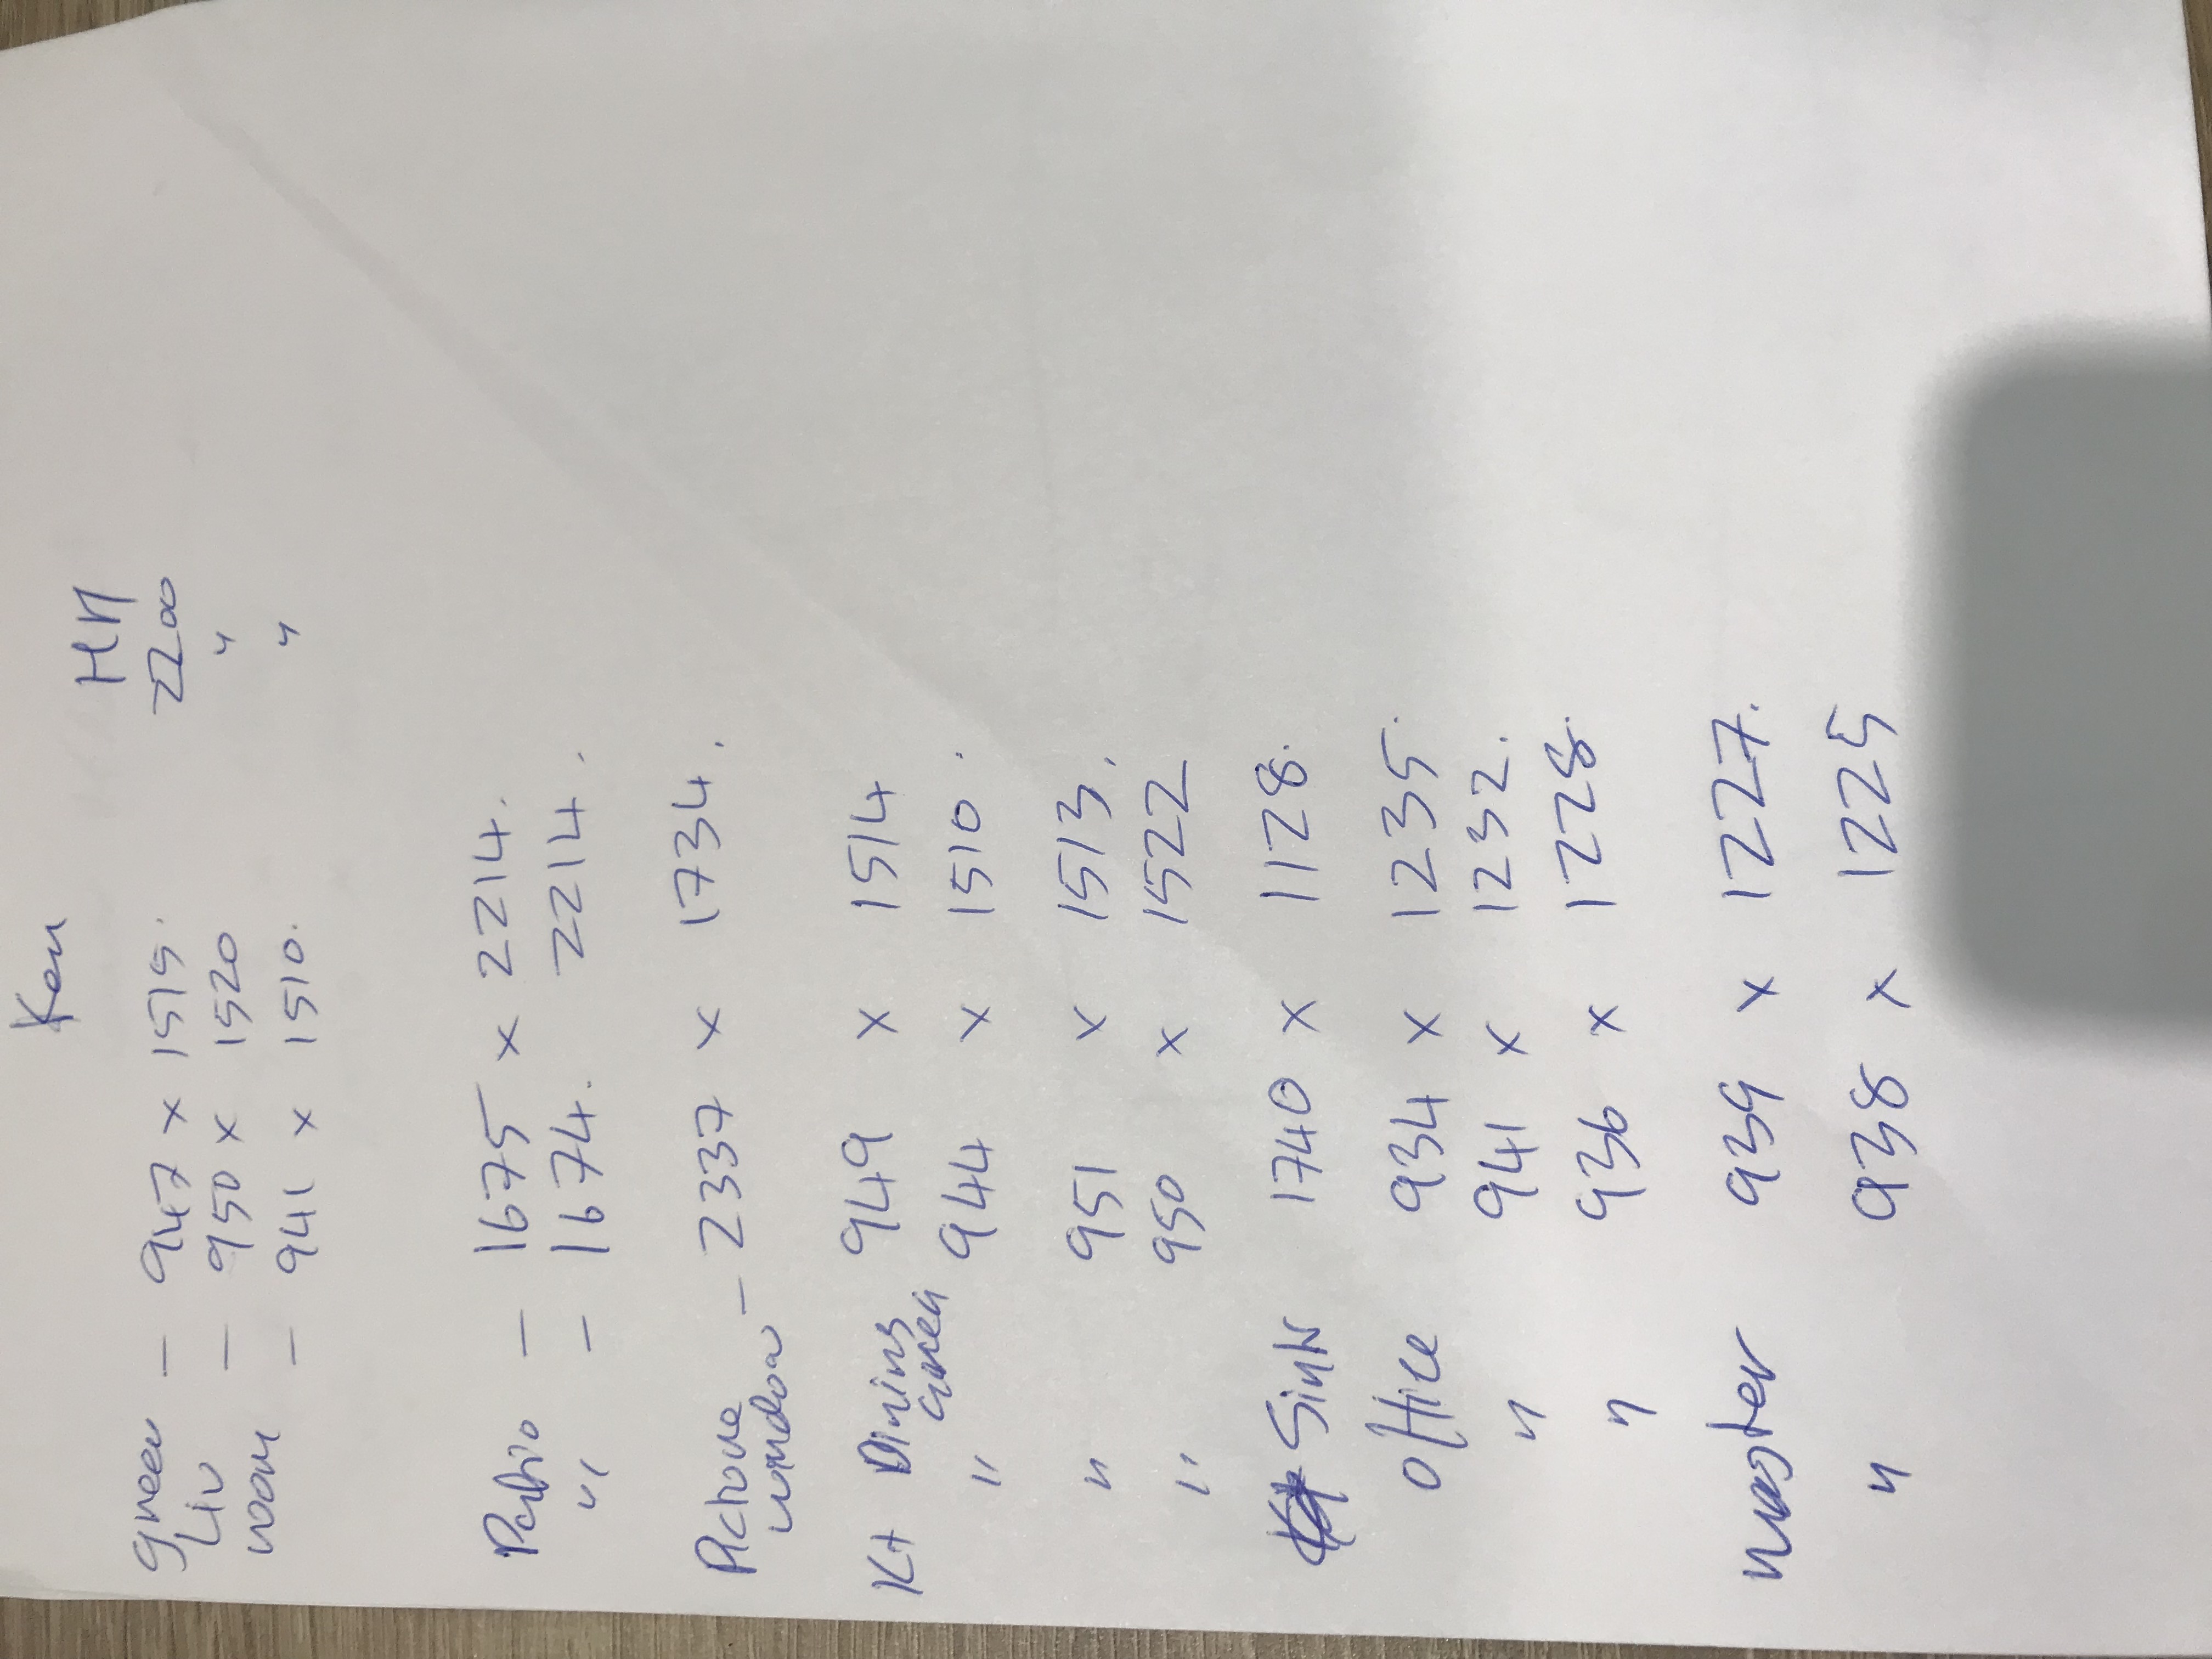 Ken
HH
green — 947 x 1515. 2200
Liv — 950 x 1520 "
room — 941 x 1510. "
Patio — 1675 x 2214.
" — 1674. 2214.
Picture
window — 2337 x 1734.
Kt Dining 949 x 1514
" area 944 x 1510.
" 951 x 1513.
" 950 x 1522
Sink 1740 x 1128.
office 934 x 1235.
" 941 x 1232.
" 936 x 1228.
master 939 x 1227.
" 938 x 1225